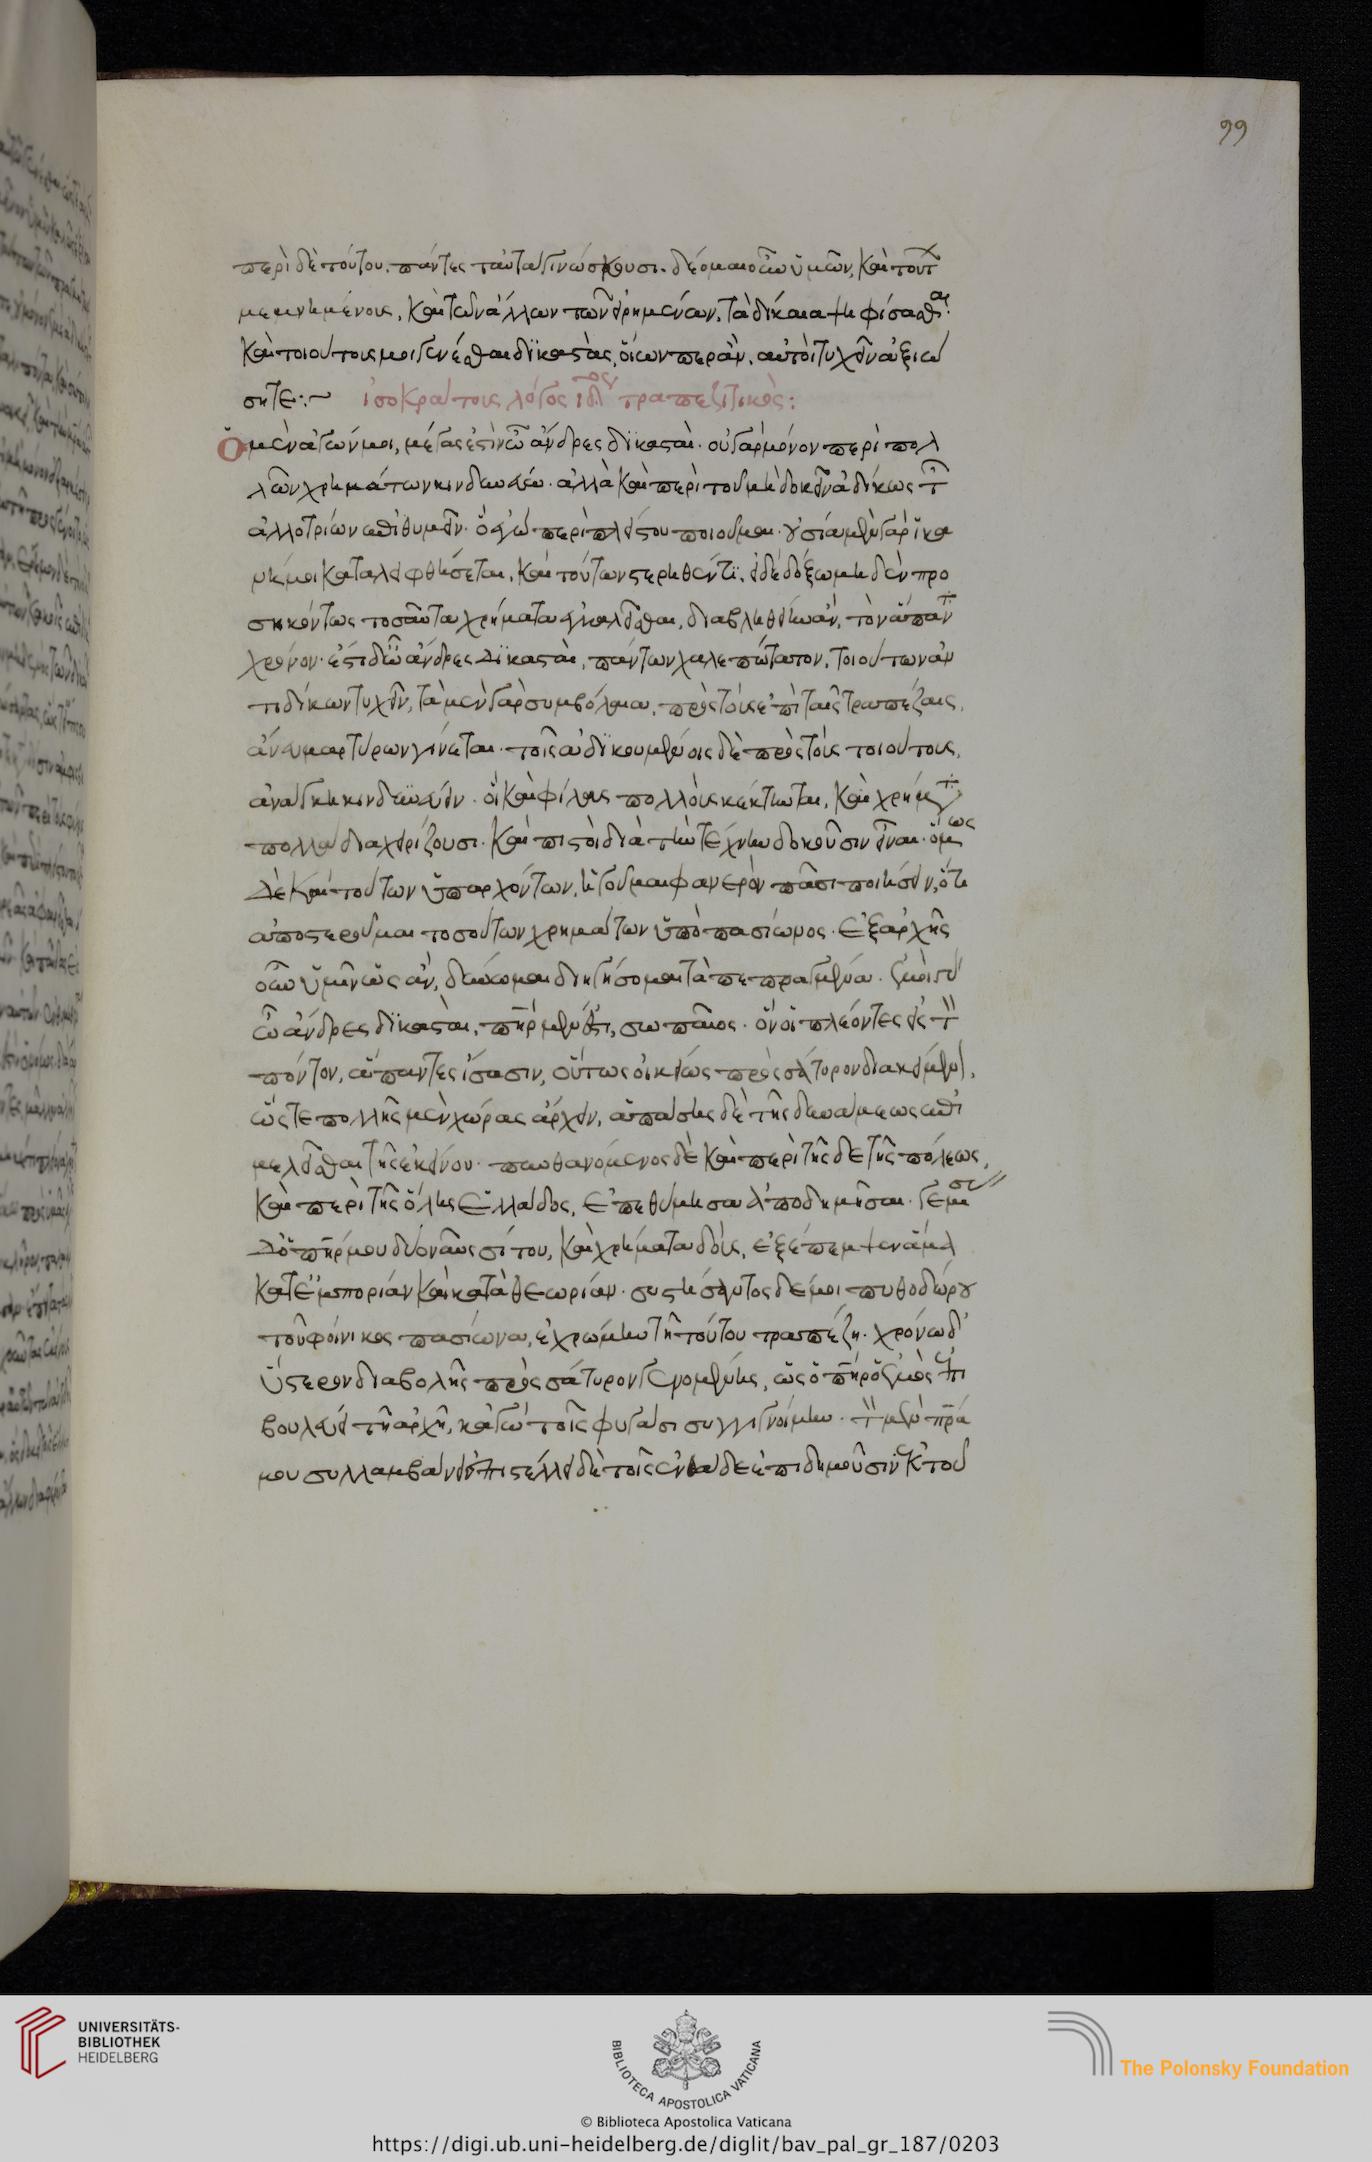 99
περὶ δὲ τούτου, πάντες ταῦτα γινώσκουσι. δέομαι οὖν ὑμῶν, καὶ τούτ
μεμνημένους, καὶ τῶν ἄλλων τῶν εἰρημένων, τὰ δίκαια ψηφίσασθαι.
καὶ τοιούτους μοι γενέσθαι δϊκαστὰς, οἵων περ ἂν, αὐτοὶ τυχεῖν ἀξιώ
σητε:~ ἰσοκράτους λόγος ιδος τραπεζιτικὸς:
Ὁ μὲν ἀγών μοι, μέγας ἐστὶν ὦ ἄνδρες δϊκασταὶ. οὐ γὰρ μόνον περὶ πολ
λῶν χρημάτων κινδυνεύω. ἀλλὰ καὶ περὶ τοῦ μὴ δοκεῖν ἀδίκως τῶν
ἀλλοτρίων ἐπιθυμεῖν. ὃ ἐγὼ περὶ πλείστου ποιοῦμαι. οὐσία μὲν γὰρ ἱκα
μή μοι καταλειφθήσεται, καὶ τούτων στερηθέντϊ. εἰ δὲ δόξω μηδὲν προ
σηκόντως τοσαῦτα χρήματα ἐγκαλεῖσθαι, διαβληθείην ἂν, τὸν ἅπαντ
χρόνον. ἔστι δ' ὦ ἄνδρες δϊκασταὶ, πάντων χαλεπώτατον, τοιούτων ἀν
τιδίκων τυχεῖν, τὰ μὲν γὰρ συμβόλαια, πρὸς τοὺς ἐπὶ ταῖς τραπέζαις,
ἄνευ μαρτύρων γίνεται. τοῖς ἀδϊκουμένοις δὲ πρὸς τοὺς τοιούτους,
ἀνάγκη κινδυνεύειν. οἳ καὶ φίλους πολλοὺς κέκτηνται, καὶ χρήματ
πολλὰ διαχειρίζουσι. καὶ πιστοὶ διὰ τὴν τέχνην δοκοῦσιν εἶναι. ὅμως
δὲ καὶ τούτων ὑπαρχόντων, ἡγοῦμαι φανερὸν πᾶσι ποιήσειν, ὅτι
ἀποστεροῦμαι τοσούτων χρημάτων ὑπὸ πασίωνος. ἐξ ἀρχῆς
οὖν ὑμῖν ὡς ἂν, δύνωμαι διηγήσομαι τὰ πεπραγμένα. ἐμοὶ γὰρ
ὦ ἄνδρες δϊκασταὶ, πῆρ μέν ἐστι, σωπαῖος. ὃν οἱ πλέοντες εἰς τὸν
πόντον, ἅπαντες ἴσασιν, οὕτως οἰκείως πρὸς σάτυρον διακείμενον,
ὥστε πολλῆς μὲν χώρας ἄρχειν, ἁπάσης δὲ τῆς δυνάμεως ἐπι
μελεῖσθαι τῆς ἐκείνου. πυνθανόμενος δὲ καὶ περὶ τῆσδε τῆς πόλεως,
καὶ περὶ τῆς ὅλης ἑλλάδος, ἐπεθύμησα ἀποδημῆσαι. γεμίσας
δὲ ὁ πῆρ μου δύο ναῦς σίτου, καὶ χρήματα δοὺς, ἐξέπεμψεν ἅμα
κατ' ἐμπορίαν καὶ κατὰ θεωρίαν. συστήσαντος δέ μοι πυθοδώρου
τοῦ φοίνικος πασίωνα, ἐχρώμην τῆ τούτου τραπέζη. χρόνω δ'
ὕστερον διαβολῆς πρὸς σάτυρον γενομένης, ὡς ὁ πῆρ ὁ ἐμὸς ἐπι
βουλεύει τῆ ἀρχῆ, κἀγὼ τοῖς φυγάσι συγγιγνοίμην. τὸν μὲν πρα
μου συλλαμβάνει. ἐπιστέλλει δὲ τοῖς ἐνθάδε ἐπιδημοῦσιν ἐκ τοῦ
UNIVERSITÄTS-
BIBLIOTHEK
HEIDELBERG
BIBLIOTECA APOSTOLICA VATICANA
The Polonsky Foundation
© Biblioteca Apostolica Vaticana
https://digi.ub.uni-heidelberg.de/diglit/bav_pal_gr_187/0203